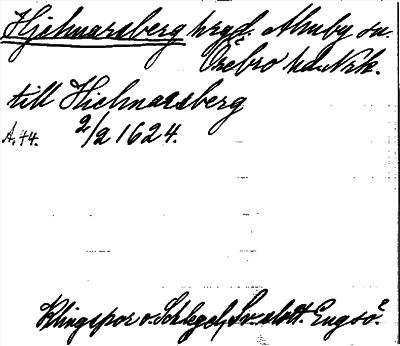 Hjelmarsberg hrgd. Almby sn.
Örebro hd. Nrk.
till Hielmarsberg
A. 44. 2/2 1624.
Klingspor o. Schlegel, Sv. slott. Engsö.